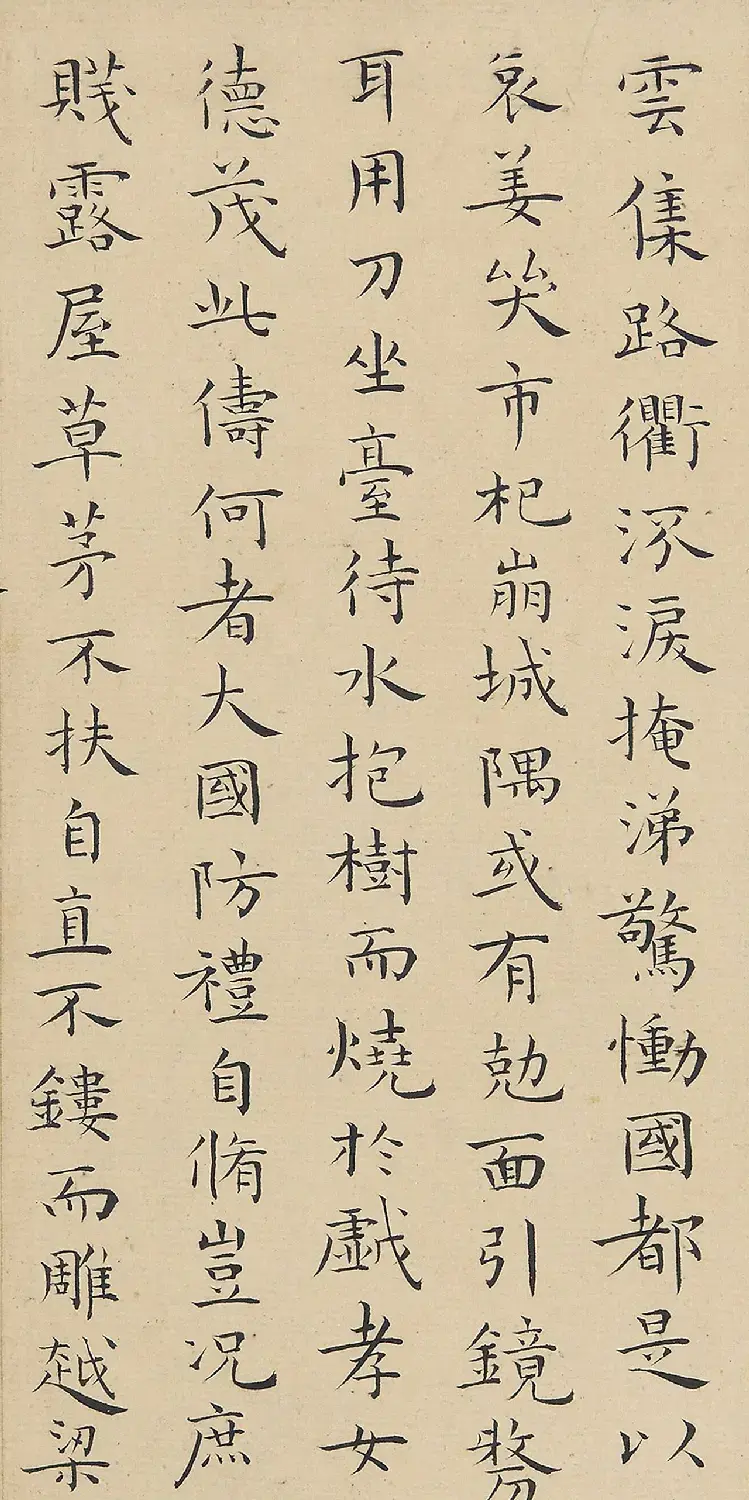 雲集路衢泝淚掩涕驚慟國都是以
哀姜哭市杞崩城隅或有勊面引鏡剺
耳用刀坐臺待水抱樹而燒於戱孝女
德茂此儔何者大國防禮自脩豈况庶
賤露屋草茅不扶自直不鏤而雕越梁